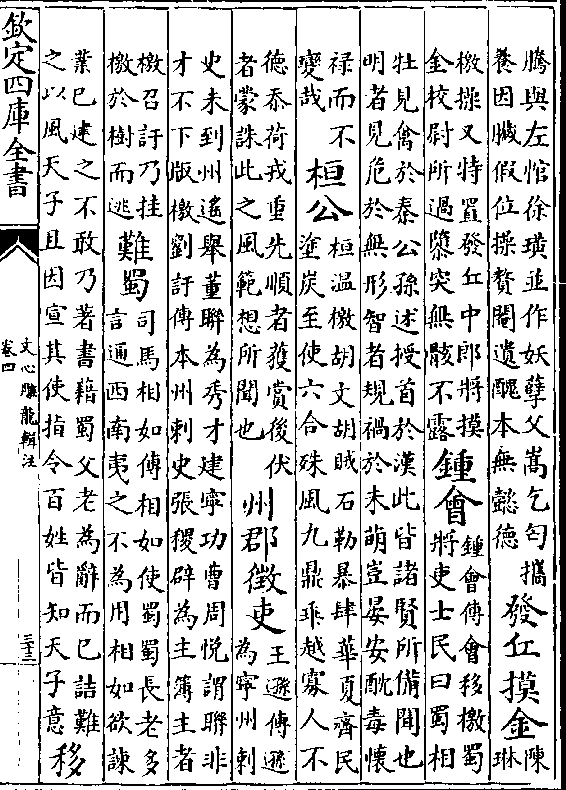 騰與左悺徐璜並作妖孽父嵩乞匄攜
養因贓假位操贅閹遺醜本無懿德
發丘摸金
陳
琳
檄操又特置發丘中郎將摸
金校尉所過隳突無骸不露
鍾會
鍾會傳會移檄蜀
將吏士民曰蜀相
牡見禽於秦公孫述授首於漢此皆諸賢所備聞也
明者見危於無形智者規禍於未萌豈晏安酖毒懷
祿而不
變哉
桓公
桓溫檄胡文胡賊石勒暴肆華夏齊民
塗炭至使六合殊風九鼎乖越寡人不
德忝荷戎重先順者獲賞後伏
者蒙誅此之風範想所聞也
州郡徵吏
王遜傳遜
為寧州刺
史未到州遙舉董聯為秀才建寧功曹周悅謂聯非
才不下版檄劉訏傳本州刺史張稷辟為主簿主者
檄召訏乃挂
檄於樹而逃
難蜀
司馬相如傳相如使蜀蜀長老多
言通西南夷之不為用相如欲諫
業已建之不敢乃著書藉蜀父老為辭而已詰難
之以風天子且因宣其使指令百姓皆知天子意
移
欽定四庫全書
文心雕龍輯注
卷四
三十三